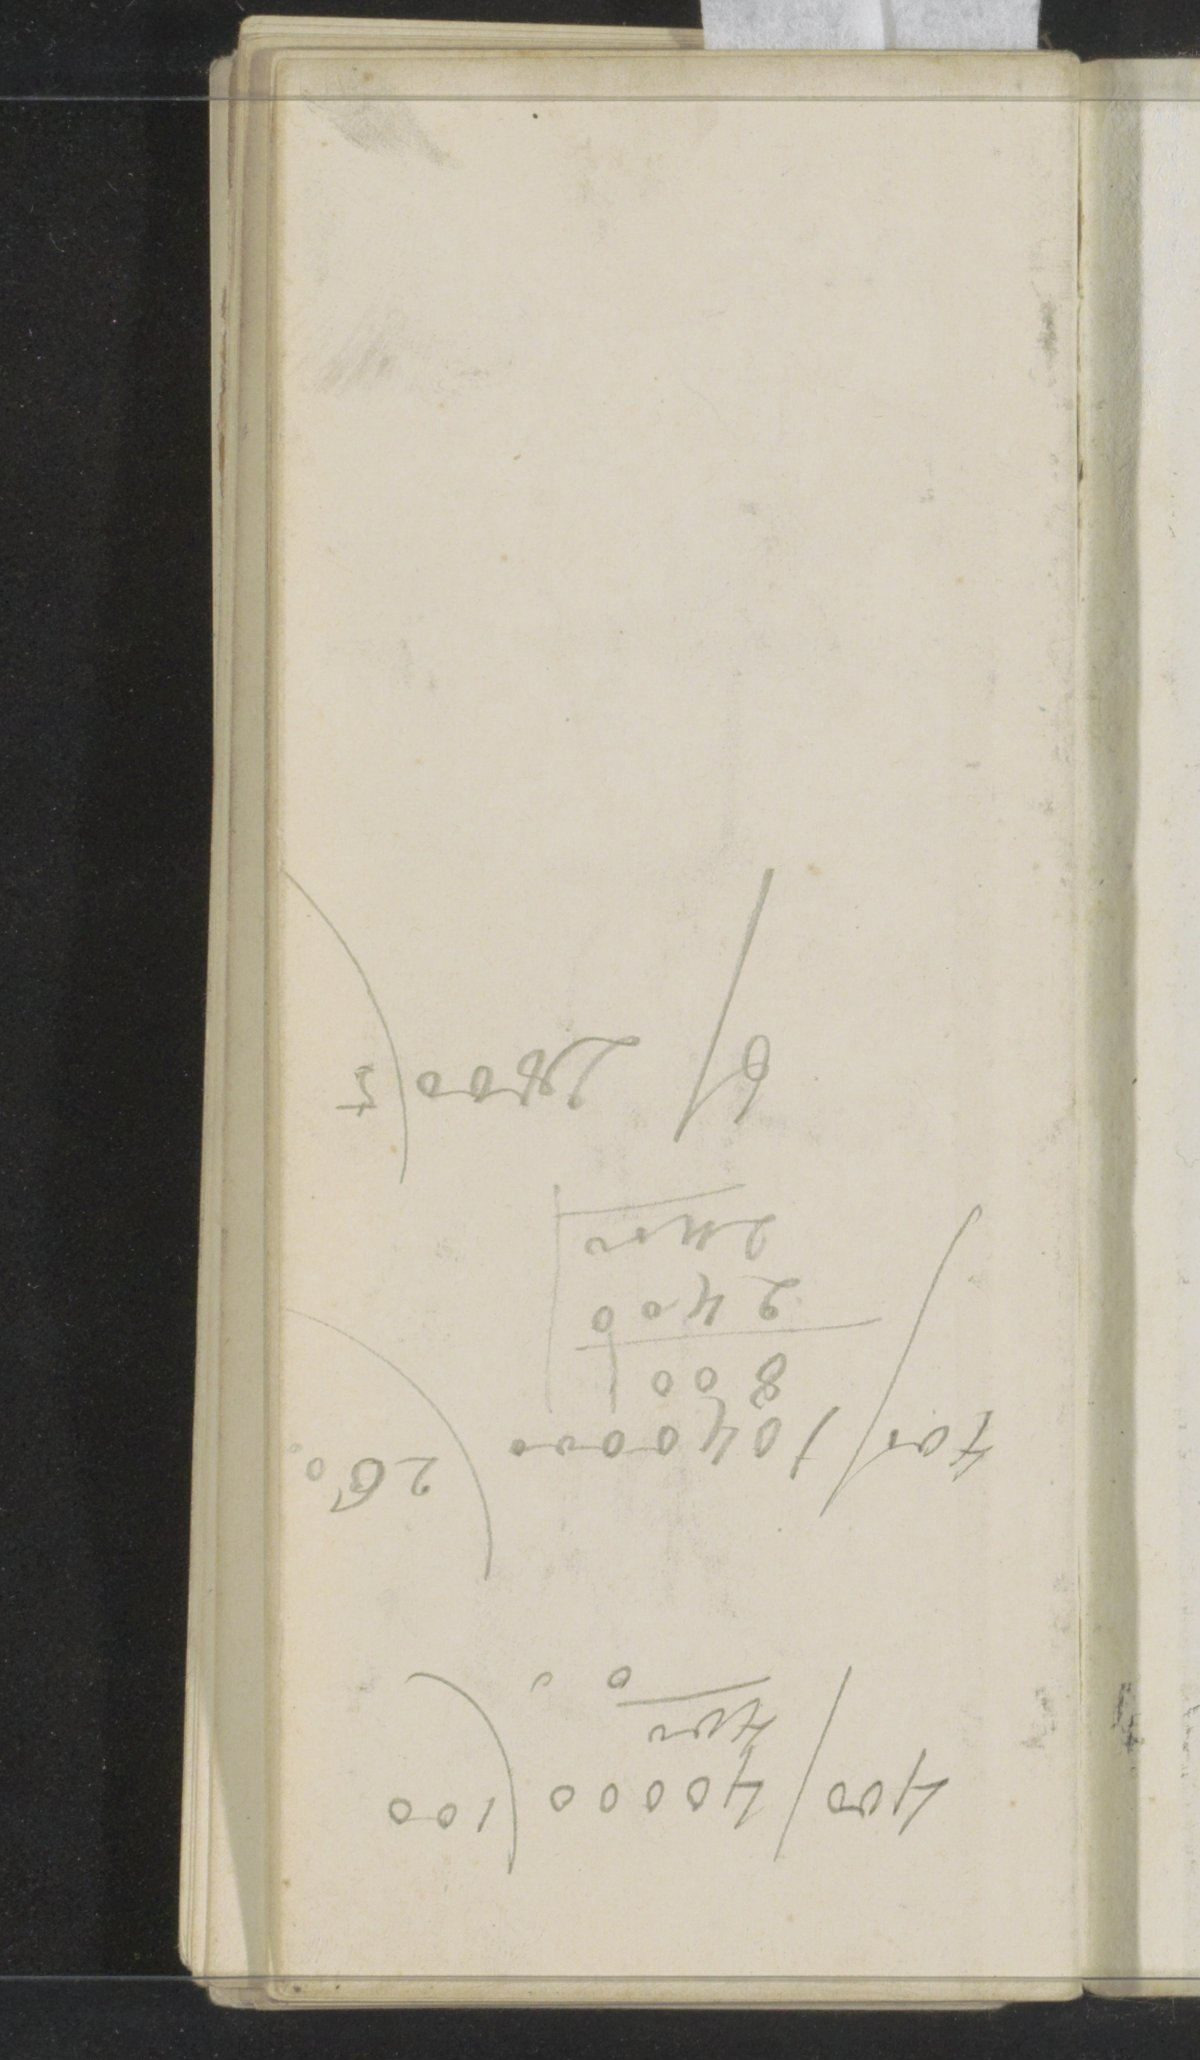 400 / 40000 ( 100
400
0
400 / 1040000 ( 2600
800
2400
2400
6 / 2800 ( 5